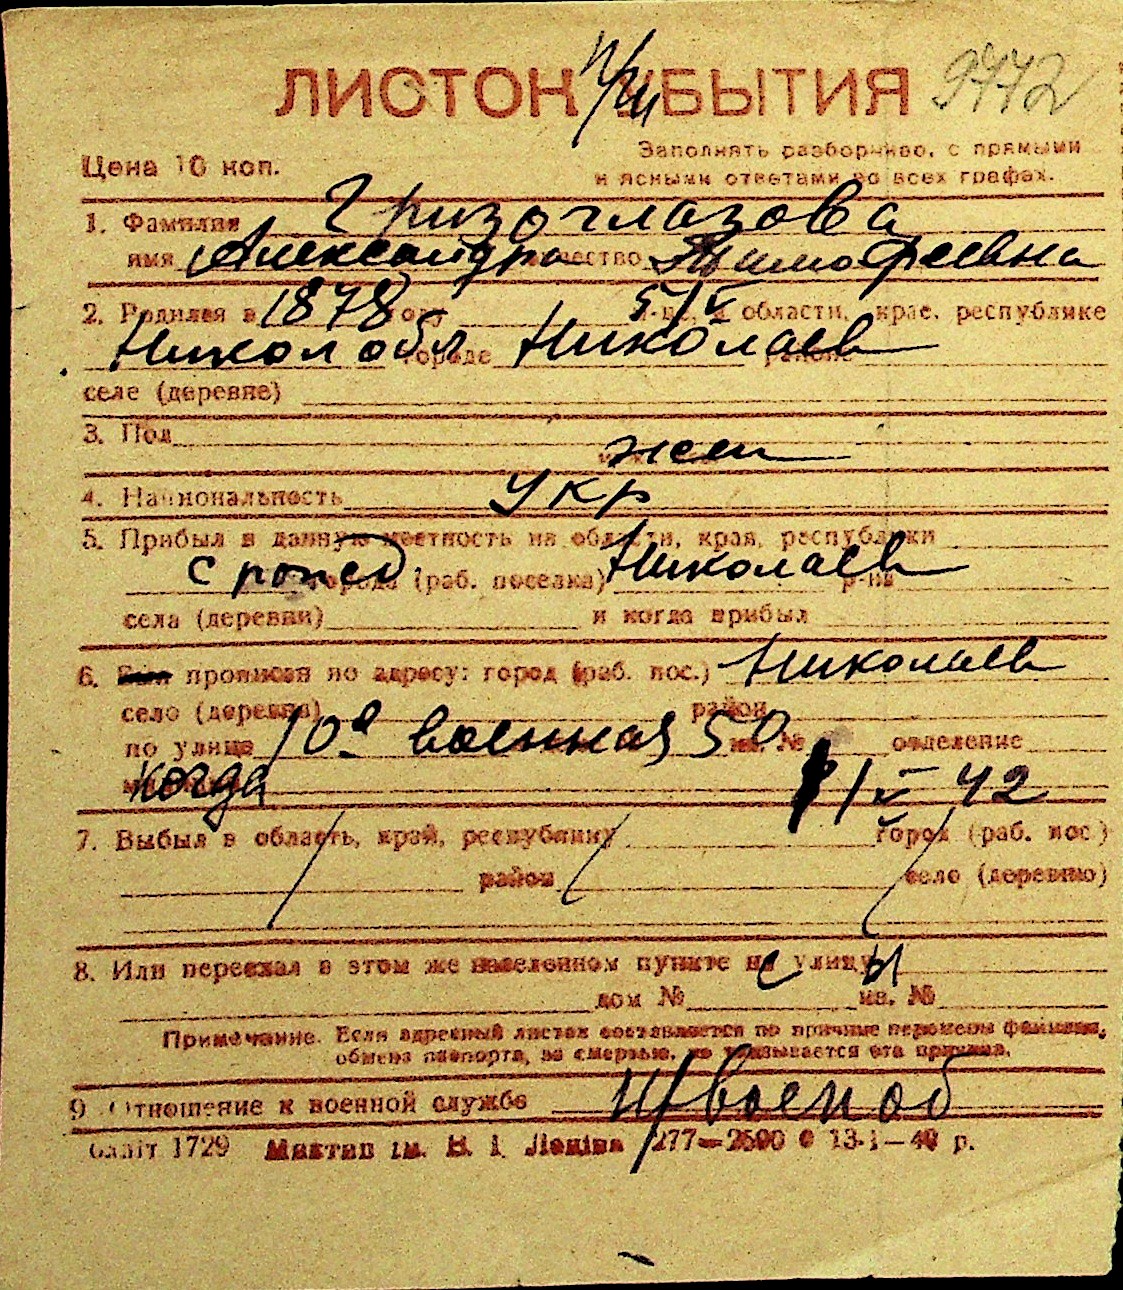 ЛИСТОК УБЫТИЯ 9772
Цена 10 коп.
Заполнять разборчиво, с прямыми
и ясными ответами во всех графах.
1. Фамилия Гризоглазова
имя Александра отчество Тимофеевна
2. Родился в 1878 году 5/V м-це, в области, крае, республике
Никол обл городе Николаев районе
селе (деревне)
3. Пол жен
4. Национальность Укр
5. Прибыл в данную местность из области, края, республики
с рожд города (раб. поселка) Николаев р-на
села (деревни) и когда прибыл
6. Был прописан по адресу: город (раб. пос.) Николаев
село (деревня) район
по улице 10я военная 50 кв. № отделение
милиции когда 1/V 42
7. Выбыл в область, край, республику город (раб. пос.)
район село (деревню)
8. Или переехал в этом же населенном пункте на улицу
дом № кв. №
Примечание. Если адресный листок составляется по причине перемены фамилии,
обмена паспорта, за смертью, то указывается эта причина.
9. Отношение к военной службе н/военоб
Облліт 1729 ім. В. І. Леніна 277—2500 13-I—40 р.